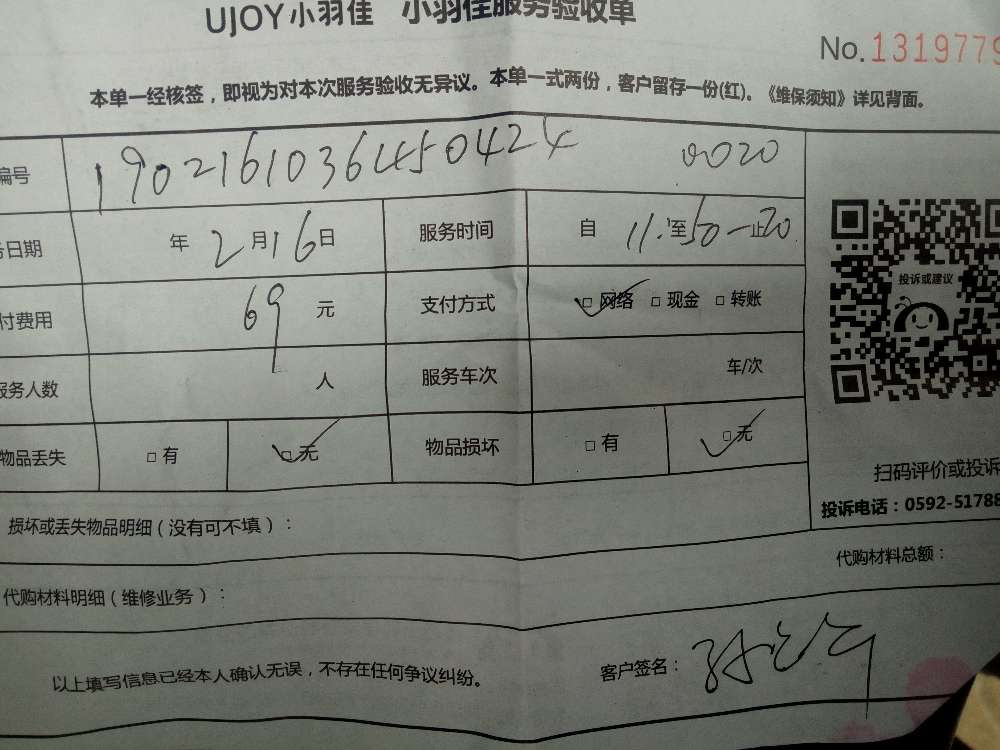 UJOY小羽佳 小羽佳服务验收单
No.1319779
本单一经核签，即视为对本次服务验收无异议。本单一式两份，客户留存一份(红)。《维保须知》详见背面。
编号 1902161036450424 0020
务日期 年 2月16日 服务时间 自 11.至50-止20
付费用 69 元 支付方式 □网络 □现金 □转账
投诉或建议
服务人数 人 服务车次 车/次
物品丢失 □有 □无 物品损坏 □有 □无
扫码评价或投诉
投诉电话：0592-51788
损坏或丢失物品明细（没有可不填）：
代购材料总额：
代购材料明细（维修业务）：
以上填写信息已经本人确认无误，不存在任何争议纠纷。
客户签名：